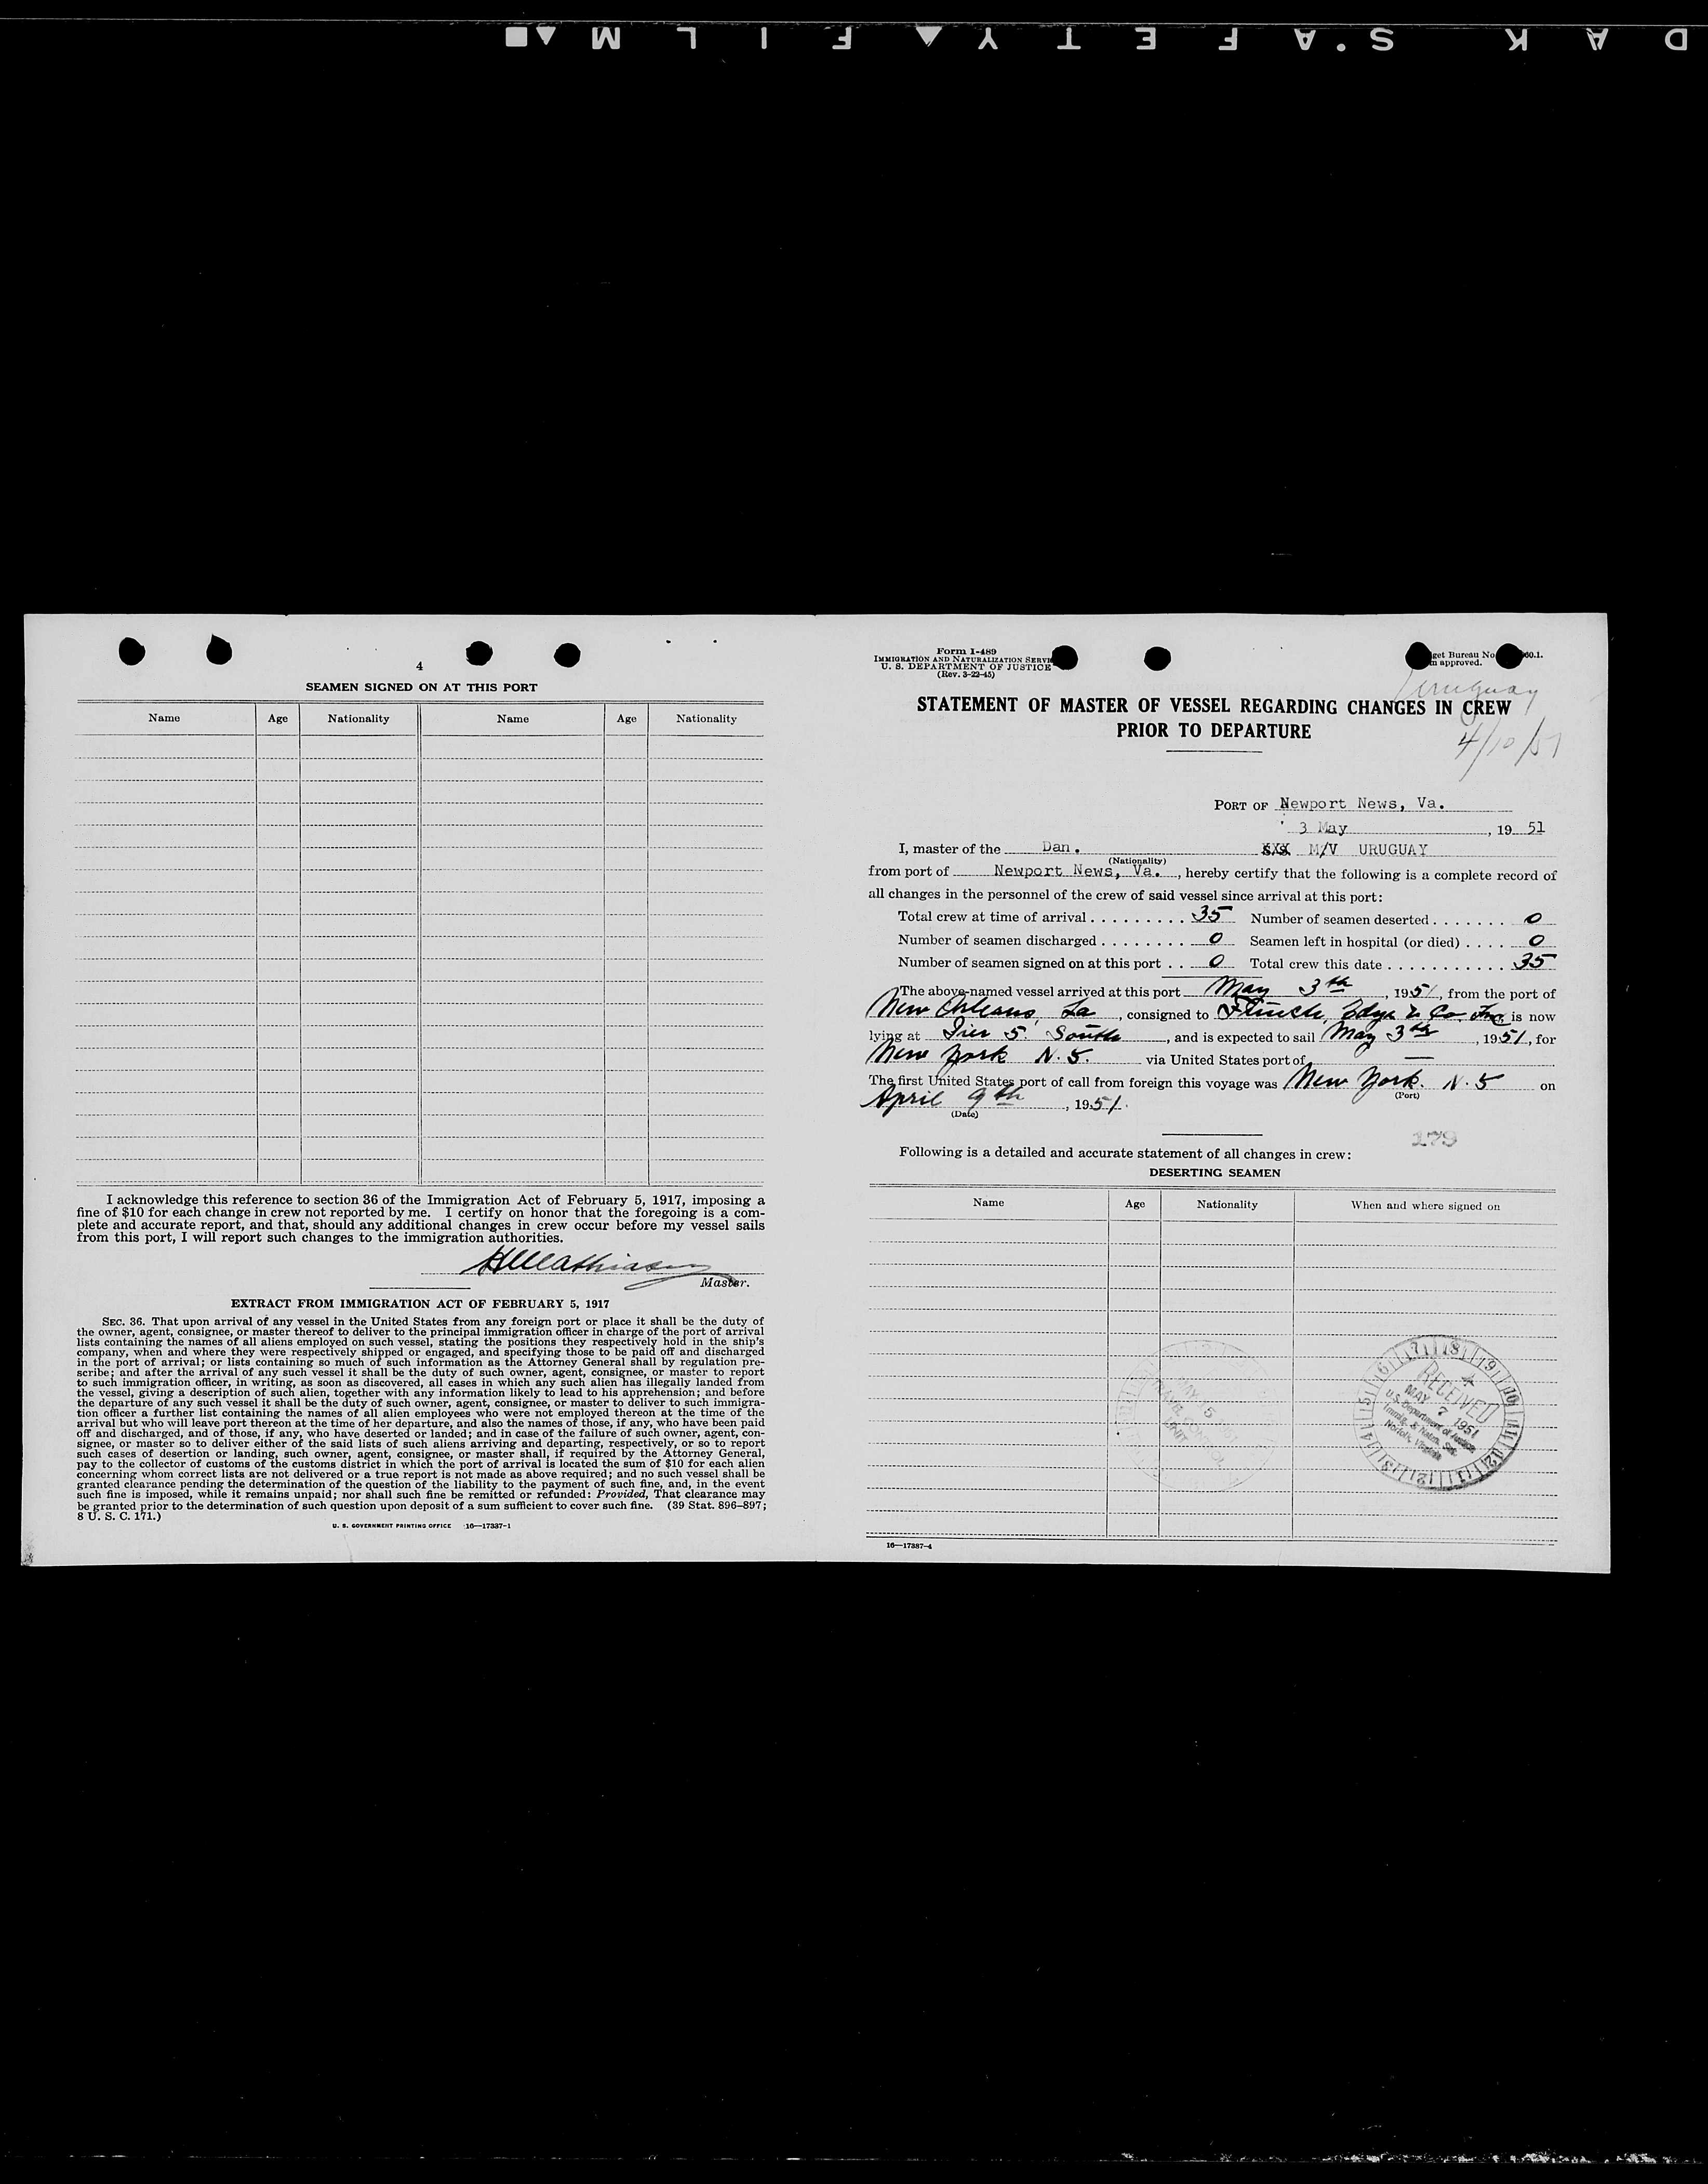 DAK S'AFETY FILM
4
SEAMEN SIGNED ON AT THIS PORT
Name Age Nationality Name Age Nationality
I acknowledge this reference to section 36 of the Immigration Act of February 5, 1917, imposing a
fine of $10 for each change in crew not reported by me. I certify on honor that the foregoing is a com-
plete and accurate report, and that, should any additional changes in crew occur before my vessel sails
from this port, I will report such changes to the immigration authorities.
Master.
EXTRACT FROM IMMIGRATION ACT OF FEBRUARY 5, 1917
SEC. 36. That upon arrival of any vessel in the United States from any foreign port or place it shall be the duty of
the owner, agent, consignee, or master thereof to deliver to the principal immigration officer in charge of the port of arrival
lists containing the names of all aliens employed on such vessel, stating the positions they respectively hold in the ship's
company, when and where they were respectively shipped or engaged, and specifying those to be paid off and discharged
in the port of arrival; or lists containing so much of such information as the Attorney General shall by regulation pre-
scribe; and after the arrival of any such vessel it shall be the duty of such owner, agent, consignee, or master to report
to such immigration officer, in writing, as soon as discovered, all cases in which any such alien has illegally landed from
the vessel, giving a description of such alien, together with any information likely to lead to his apprehension; and before
the departure of any such vessel it shall be the duty of such owner, agent, consignee, or master to deliver to such immigra-
tion officer a further list containing the names of all alien employees who were not employed thereon at the time of the
arrival but who will leave port thereon at the time of her departure, and also the names of those, if any, who have been paid
off and discharged, and of those, if any, who have deserted or landed; and in case of the failure of such owner, agent, con-
signee, or master so to deliver either of the said lists of such aliens arriving and departing, respectively, or so to report
such cases of desertion or landing, such owner, agent, consignee, or master shall, if required by the Attorney General,
pay to the collector of customs of the customs district in which the port of arrival is located the sum of $10 for each alien
concerning whom correct lists are not delivered or a true report is not made as above required; and no such vessel shall be
granted clearance pending the determination of the question of the liability to the payment of such fine, and, in the event
such fine is imposed, while it remains unpaid; nor shall such fine be remitted or refunded: Provided, That clearance may
be granted prior to the determination of such question upon deposit of a sum sufficient to cover such fine. (39 Stat. 896–897;
8 U. S. C. 171.)
U. S. GOVERNMENT PRINTING OFFICE 16—17387-1
Form I-489
IMMIGRATION AND NATURALIZATION SERVI
U. S. DEPARTMENT OF JUSTICE
(Rev. 3-22-45)
get Bureau No. 60.1.
approved.
Uruguay
STATEMENT OF MASTER OF VESSEL REGARDING CHANGES IN CREW
PRIOR TO DEPARTURE
4/10/51
PORT OF Newport News, Va.
3 May, 19 51
I, master of the Dan. XXX M/V URUGUAY
(Nationality)
from port of Newport News, Va., hereby certify that the following is a complete record of
all changes in the personnel of the crew of said vessel since arrival at this port:
Total crew at time of arrival . . . . . . . . . 35 Number of seamen deserted . . . . . . . 0
Number of seamen discharged . . . . . . . . 0 Seamen left in hospital (or died) . . . . 0
Number of seamen signed on at this port . . 0 Total crew this date . . . . . . . . . . . 35
The above-named vessel arrived at this port May 3th, 1951, from the port of
New Orleans, La, consigned to Funch, Edye & Co. Inc, is now
lying at Pier 5. South, and is expected to sail May 3th, 1951, for
New York N.Y. via United States port of —
The first United States port of call from foreign this voyage was New York. N.Y on
(Port)
April 9th, 1951.
(Date)
179
Following is a detailed and accurate statement of all changes in crew:
DESERTING SEAMEN
Name Age Nationality When and where signed on
RECEIVED
MAY 7 1951
U.S. Department of Justice
Immig. & Natzn. Se
Norfolk, Virginia
16—17387-4